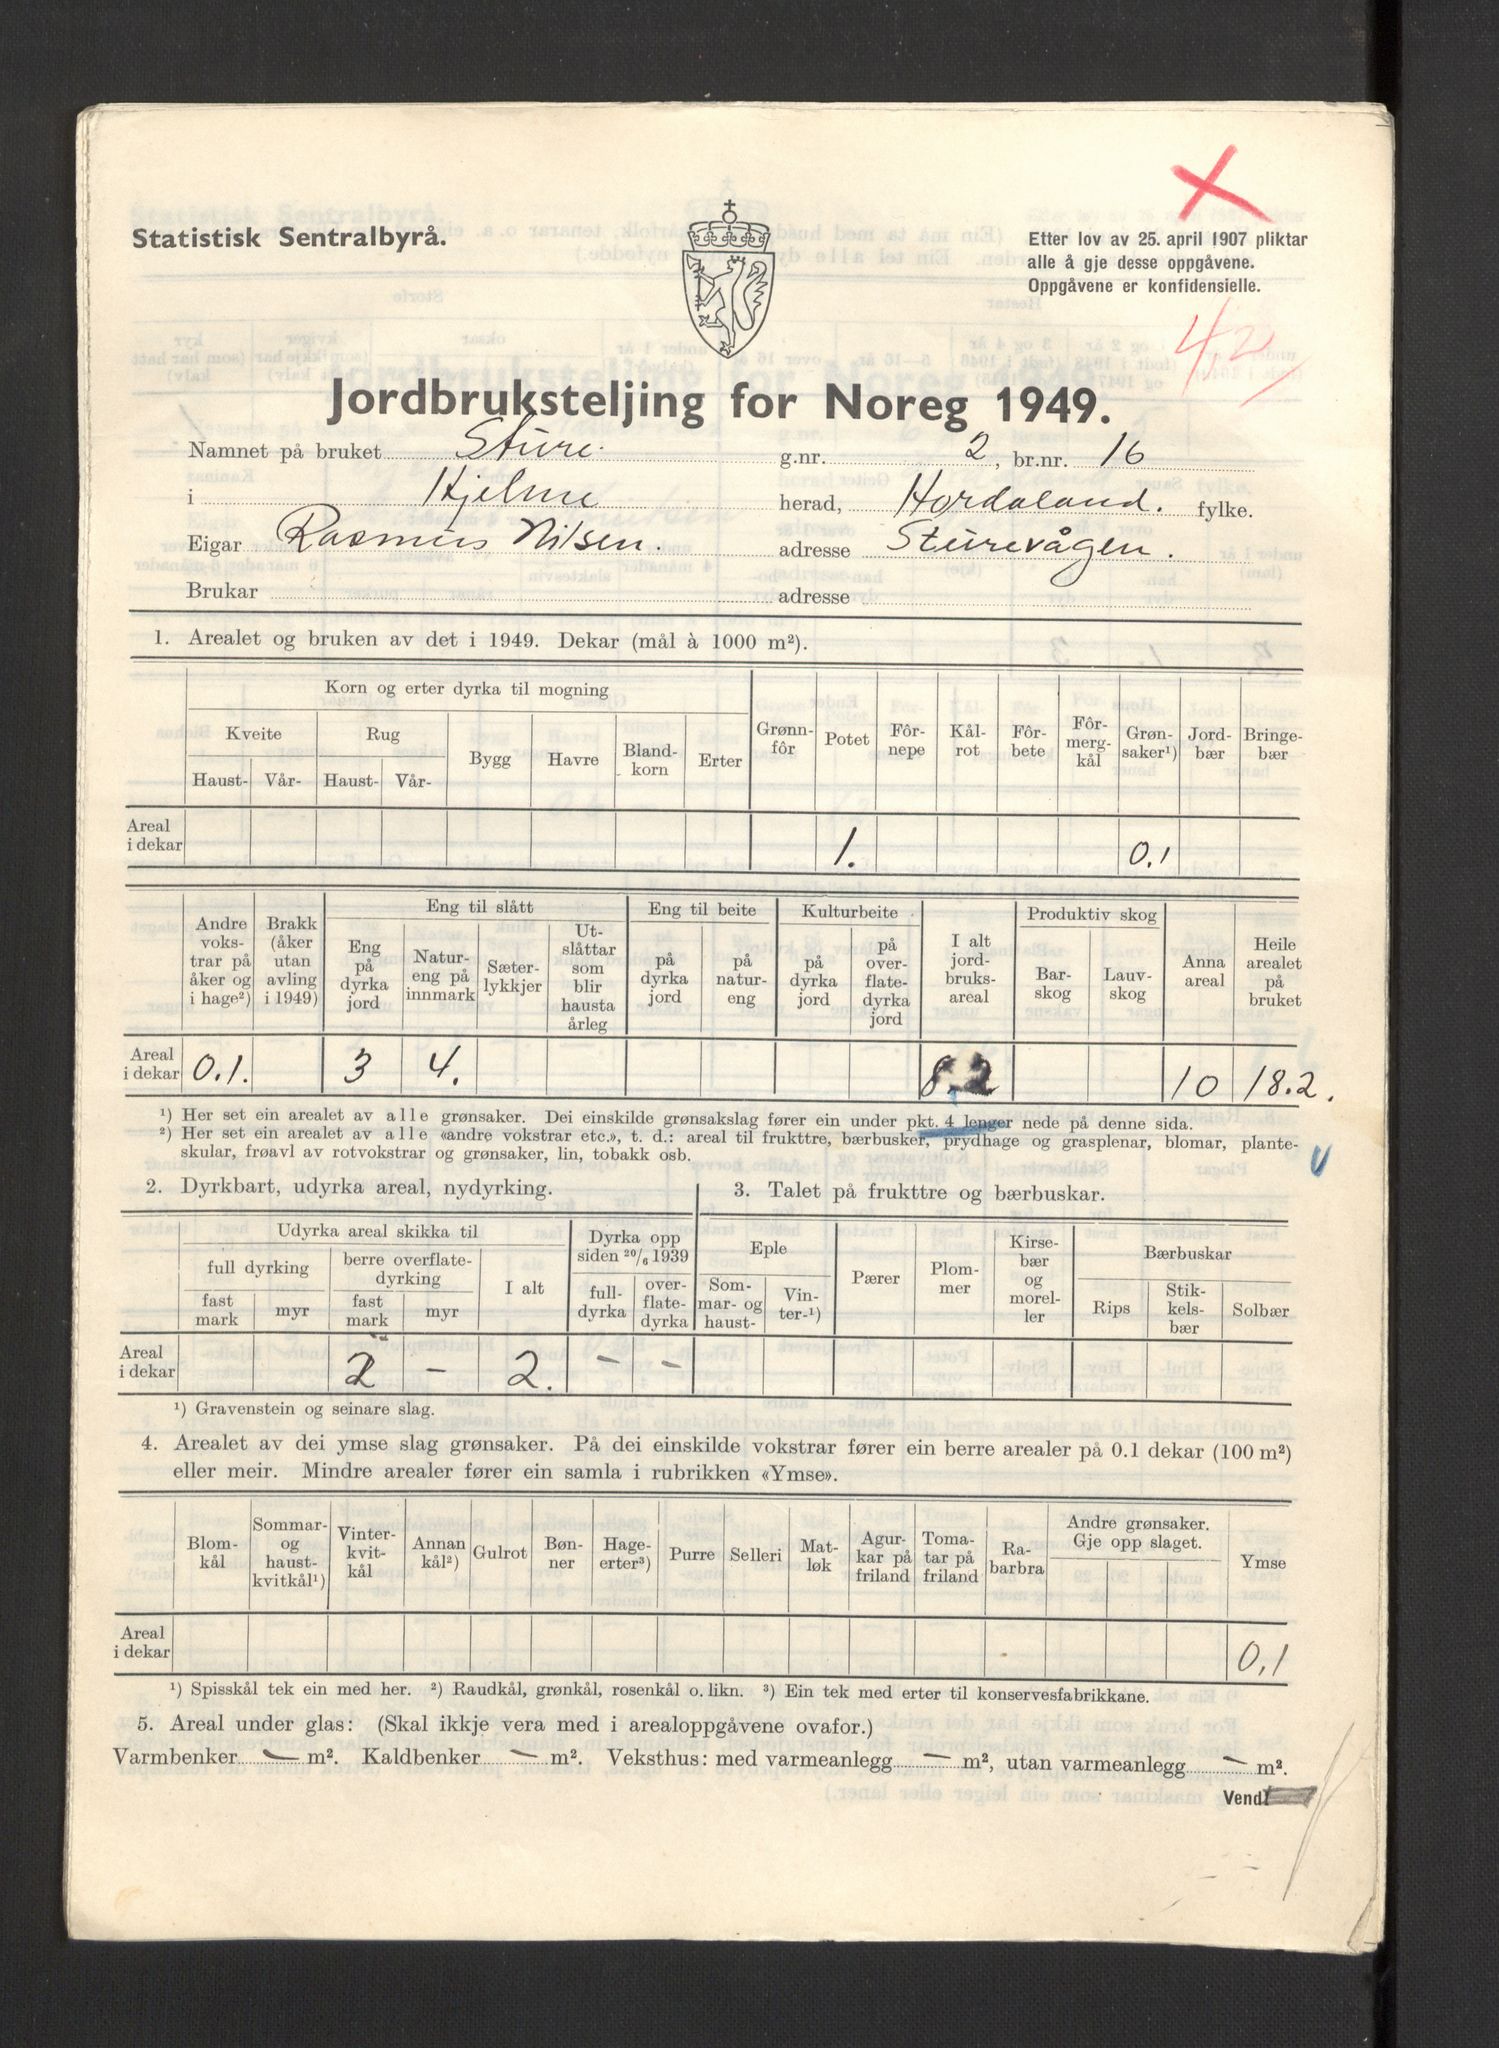 Statistisk Sentralbyrå.
Etter lov av 25. april 1907 pliktar
alle å gje desse oppgåvene.
Oppgåvene er konfidensielle.
42
Jordbruksteljing for Noreg 1949.
Namnet på bruket Sture. g.nr. 2, br.nr. 16
i Hjelme herad, Hordaland. fylke.
Eigar Rasmus Nilsen. adresse Sturevågen.
Brukar adresse
1. Arealet og bruken av det i 1949. Dekar (mål à 1000 m²).
Korn og erter dyrka til mogning
Kveite Rug Bygg Havre Bland-korn Erter Grønn-fôr Potet Fôr-nepe Kål-rot Fôr-bete Fôr-merg-kål Grøn-saker¹) Jord-bær Bringe-bær
Haust- Vår- Haust- Vår-
Areal i dekar 1. 0.1
Andre voks-trar på åker og i hage²) Brakk (åker utan avling i 1949) Eng til slått Eng til beite Kulturbeite I alt jord-bruks-areal Produktiv skog Anna areal Heile arealet på bruket
Eng på dyrka jord Natur-eng på innmark Sæter-lykkjer Ut-slåttar som blir hausta årleg på dyrka jord på natur-eng på dyrka jord på over-flate-dyrka jord Bar-skog Lauv-skog
Areal i dekar 0.1. 3 4. 8.2 10 18.2.
¹) Her set ein arealet av alle grønsaker. Dei einskilde grønsakslag fører ein under pkt. 4 lenger nede på denne sida.
²) Her set ein arealet av alle «andre vokstrar etc.», t. d.: areal til frukttre, bærbusker, prydhage og grasplenar, blomar, plante-
skular, frøavl av rotvokstrar og grønsaker, lin, tobakk osb.
2. Dyrkbart, udyrka areal, nydyrking. 3. Talet på frukttre og bærbuskar.
Udyrka areal skikka til Dyrka opp siden 20/6 1939 Eple Pærer Plom-mer Kirse-bær og morel-ler Bærbuskar
full dyrking berre overflate-dyrking I alt full-dyrka over-flate-dyrka Som-mar- og haust- Vin-ter-¹) Rips Stik-kels-bær Solbær
fast mark myr fast mark myr
Areal i dekar 2 — 2. — —
¹) Gravenstein og seinare slag.
4. Arealet av dei ymse slag grønsaker. På dei einskilde vokstrar fører ein berre arealer på 0.1 dekar (100 m²)
eller meir. Mindre arealer fører ein samla i rubrikken «Ymse».
Blom-kål Sommar- og haust-kvitkål¹) Vinter-kvit-kål Annan kål²) Gulrot Bøn-ner Hage-erter³) Purre Selleri Mat-løk Agur-kar på friland Toma-tar på friland Ra-barbra Andre grønsaker. Gje opp slaget. Ymse
Areal i dekar 0.1
¹) Spisskål tek ein med her. ²) Raudkål, grønkål, rosenkål o. likn. ³) Ein tek med erter til konservesfabrikkane.
5. Areal under glas: (Skal ikkje vera med i arealoppgåvene ovafor.)
Varmbenker — m². Kaldbenker — m². Veksthus: med varmeanlegg — m², utan varmeanlegg — m².
Vend!